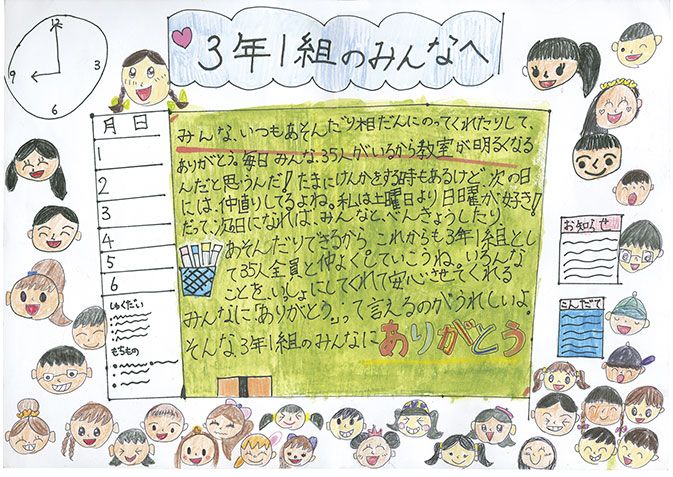 12
3
6
9
3年1組のみんなへ
月 日
1
2
3
4
5
6
しゅくだい
もちもの
みんな、いつもあそんだり相だんにのってくれたりして、
ありがとう。毎日みんな35人がいるから教室が明るくなる
んだと思うんだ!たまにけんかをする時もあるけど、次の日
には、仲直りしてるよね。私は土曜日より日曜が好き!
だって、次日になれば、みんなと、べんきょうしたり、
あそんだりできるから。これからも3年1組とし
て35人全員と仲よくしていこうね。いろんな
ことを、いっしょにしてくれて安心させてくれる
みんなに「ありがとう。」って言えるのがうれしいよ。
そんな3年1組のみんなにありがとう
お知らせ
こんだて